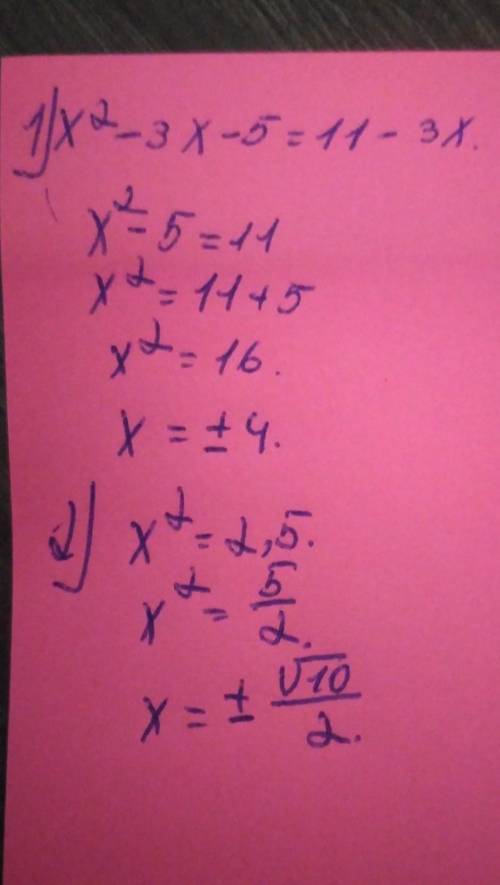 1) x² - 3x - 5 = 11 - 3x.
x² - 5 = 11
x² = 11 + 5
x² = 16.
x = ± 4.
2) x² = 2,5.
x² = 5/2.
x = ± √10/2.